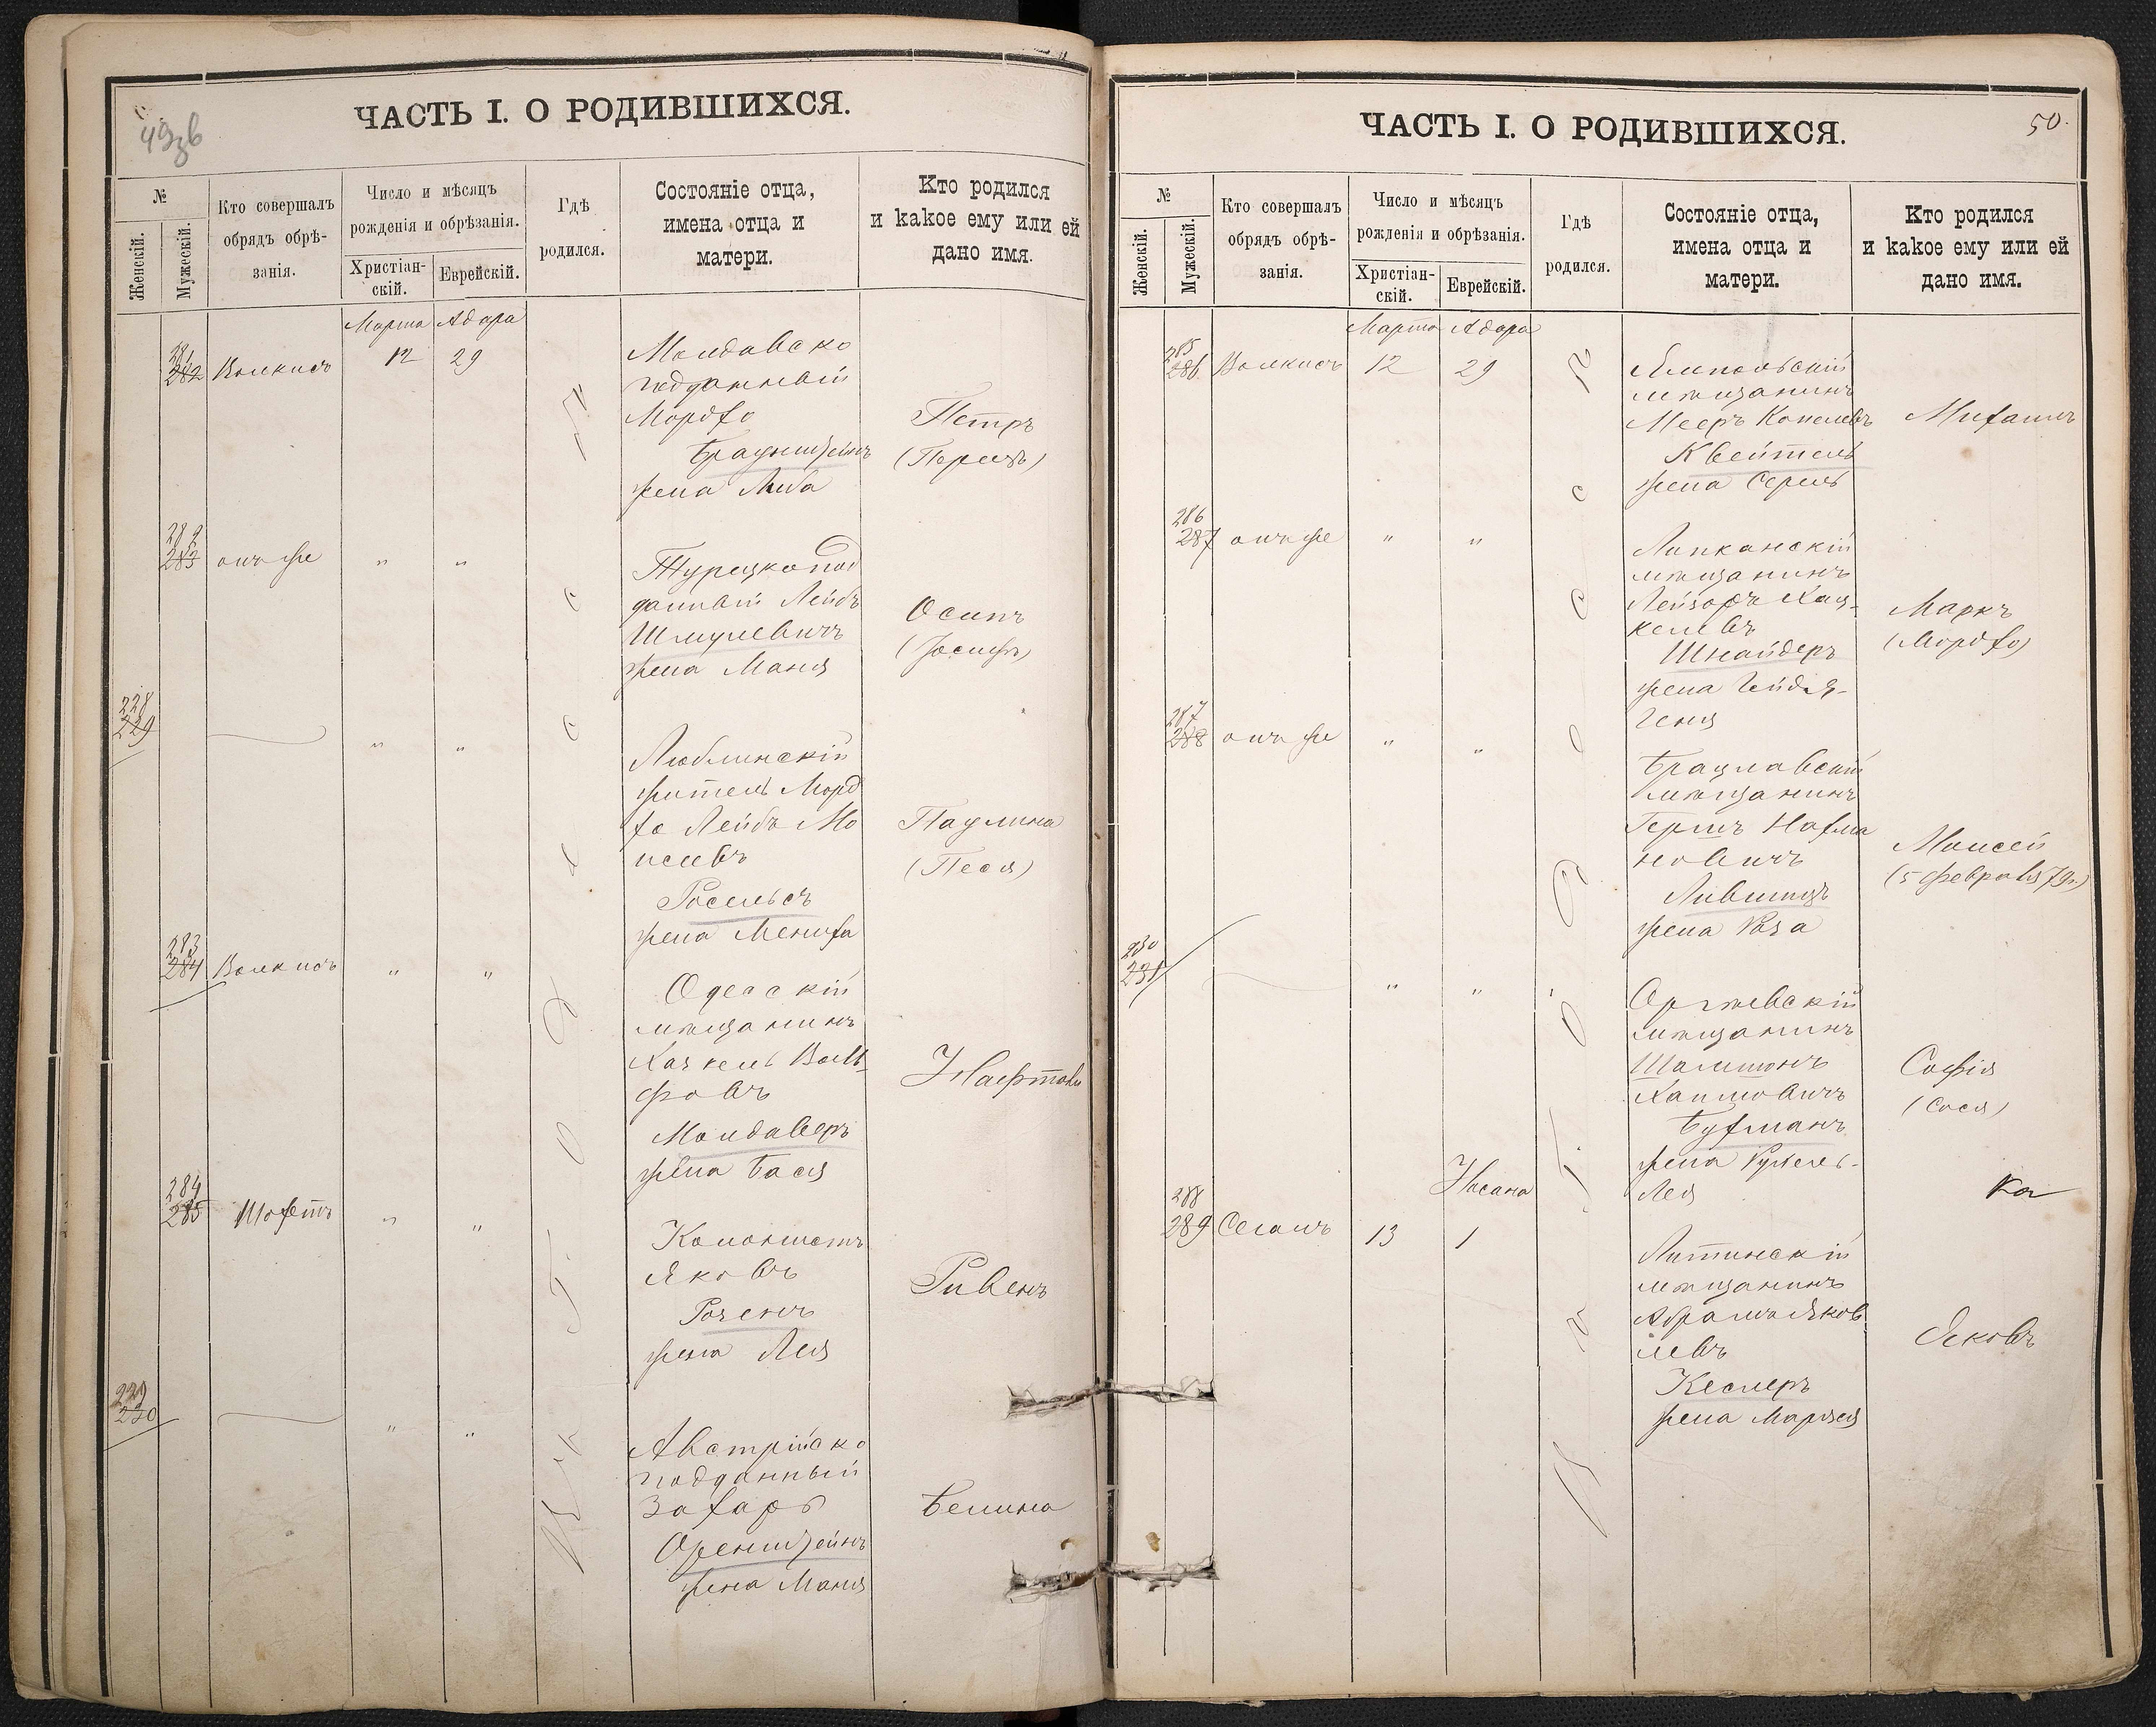 49зв
ЧАСТЬ I. О РОДИВШИХСЯ.
№
Женскій.
Мужескій.
Кто совершалъ
обрядъ обрѣ-
занія.
Число и мѣсяцъ
рожденія и обрѣзанія.
Христіан-
скій.
Еврейскій.
Гдѣ
родился.
Состояніе отца,
имена отца и
матери.
Кто родился
и какое ему или ей
дано имя.
Марта Адара
281
282 Волкисъ 12 29
Молдавско
подданный
Мордхо
Браунштейнъ
жена Люба
Петръ
(Перецъ)
282
283 онъ же " "
Турецкопод
данный Лейбъ
Шмулевичъ
жена Маня
Осипъ
(Іосифъ)
228
229 " "
Люблинскій
житель Морд
хо Лейбъ Мо
исеевъ
Росельсъ
жена Менуха
Паулина
(Песя)
283
284 Волкисъ " "
Одесскій
мѣщанинъ
Хаскель Воль
фовъ
Молдаверъ
жена Бася
Нафтоли
284
285 Шохетъ " "
Колонистъ
Яковъ
Розенъ
жена Лея
Рувенъ
229
230 " "
Австрійско
подданный
Захаръ
Оренштейнъ
жена Маня
Белина
50.
ЧАСТЬ I. О РОДИВШИХСЯ.
№
Женскій.
Мужескій.
Кто совершалъ
обрядъ обрѣ-
занія.
Число и мѣсяцъ
рожденія и обрѣзанія.
Христіан-
скій.
Еврейскій.
Гдѣ
родился.
Состояніе отца,
имена отца и
матери.
Кто родился
и какое ему или ей
дано имя.
Марта Адара
285
286 Волкисъ 12 29
Ямпольскій
мѣщанинъ
Мееръ Копелевъ
Квейтель
жена Серель
Михаилъ
286
287 онъ же " "
Липканскій
мѣщанинъ
Лейзоръ Хац-
келевъ
Шнайдеръ
жена Гейдля-
Геня
Маркъ
(Мордхо)
287
288 онъ же " "
Брацлавскій
мѣщанинъ
Гершъ Нахма
новичъ
Лившицъ
жена Роза
Моисей
(5 февраля 79г.)
230
231 " "
Оргѣевскій
мѣщанинъ
Шолимонъ
Хаимовичъ
Бухманъ
жена Рухель-
Лея
Софія
(Сося)
Ка
Нисана
288
289 Сегалъ 13 1
Литинскій
мѣщанинъ
Абрамъ Яков
левъ
Кеслеръ
жена Марьея
Яковъ